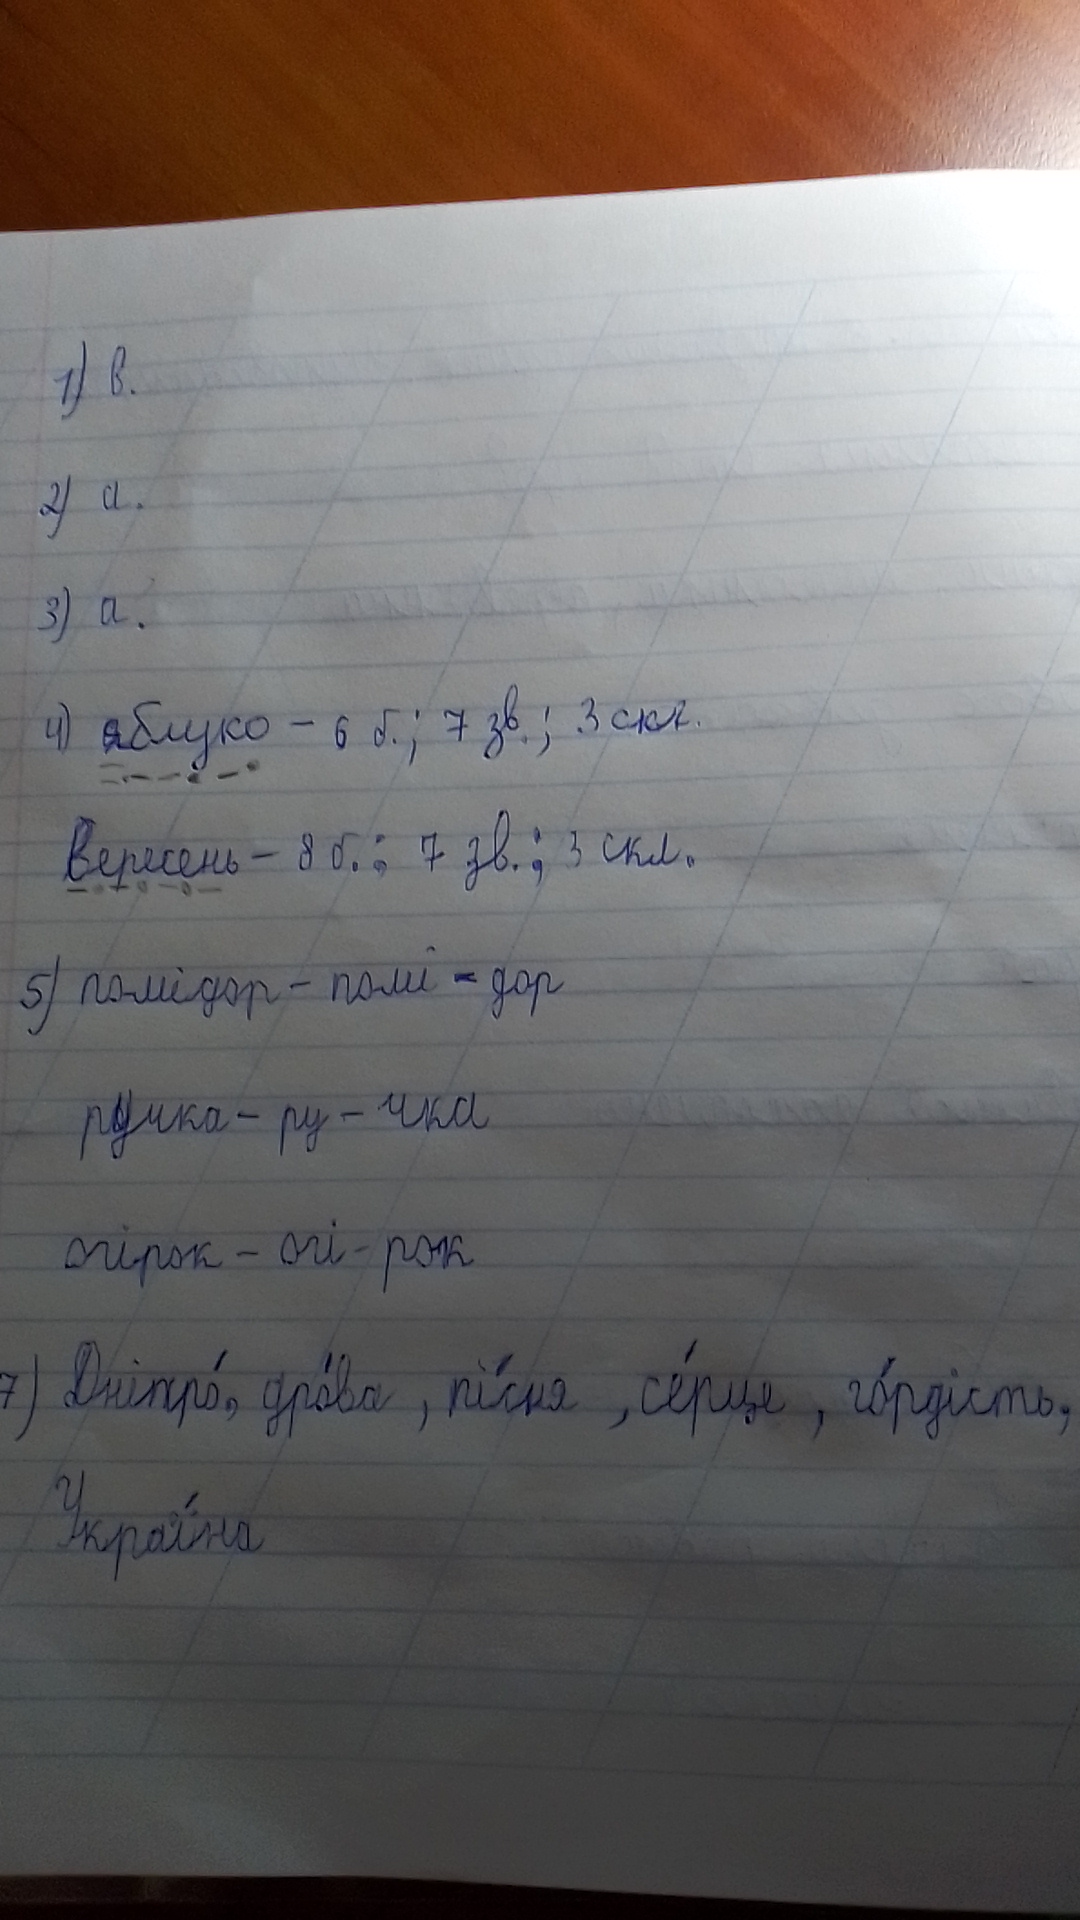 1) в.
2) а.
3) а.
4) яблуко – 6 б.; 7 зв.; 3 скл.
Вересень – 8 б.; 7 зв.; 3 скл.
5) помідор – помі - дор
ручка – ру – чка
огірок – огі – рок
7) Дніпро́, дро́ва, пі́сня, се́рце, го́рдість,
Украї́на